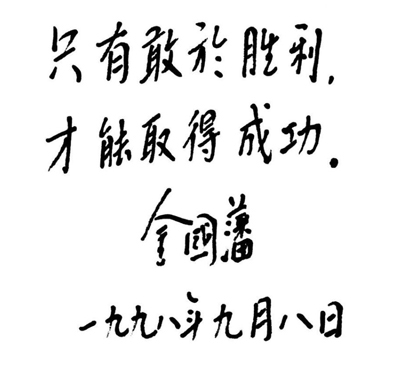 只有敢於胜利，
才能取得成功．
金國藩
一九九八年九月八日